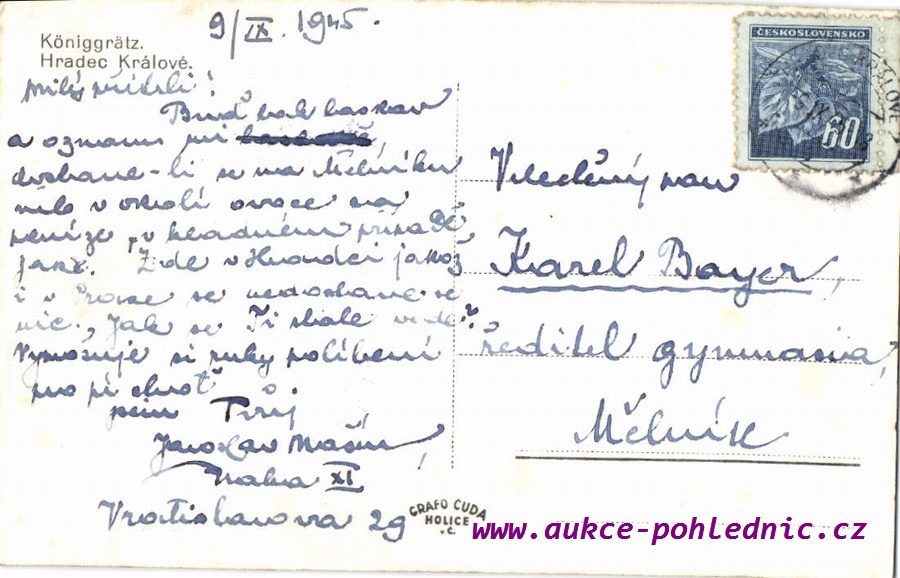 9/IX. 1945.
Königgrätz.
Hradec Králové.
milý příteli!
Buď tak laskav
a oznam mi
dostane-li se na Mělníku
nebo v okolí ovoce za
peníze, v kladném případě,
jaké. Zde v Hradci jakož
i v Praze se nedostane
nic. Jak se Ti stále vede?
si ruky políbení
choť
Tvůj
Jaroslav Mašín,
Praha XI
Vratislavova 29
ČESKOSLOVENSKO
60
KRÁLOVÉ 2
Vzácný pan
Karel Bayer,
ředitel gymnasia,
Mělník
GRAFO ČUDA
HOLICE
v.Č.
www.aukce-pohlednic.cz